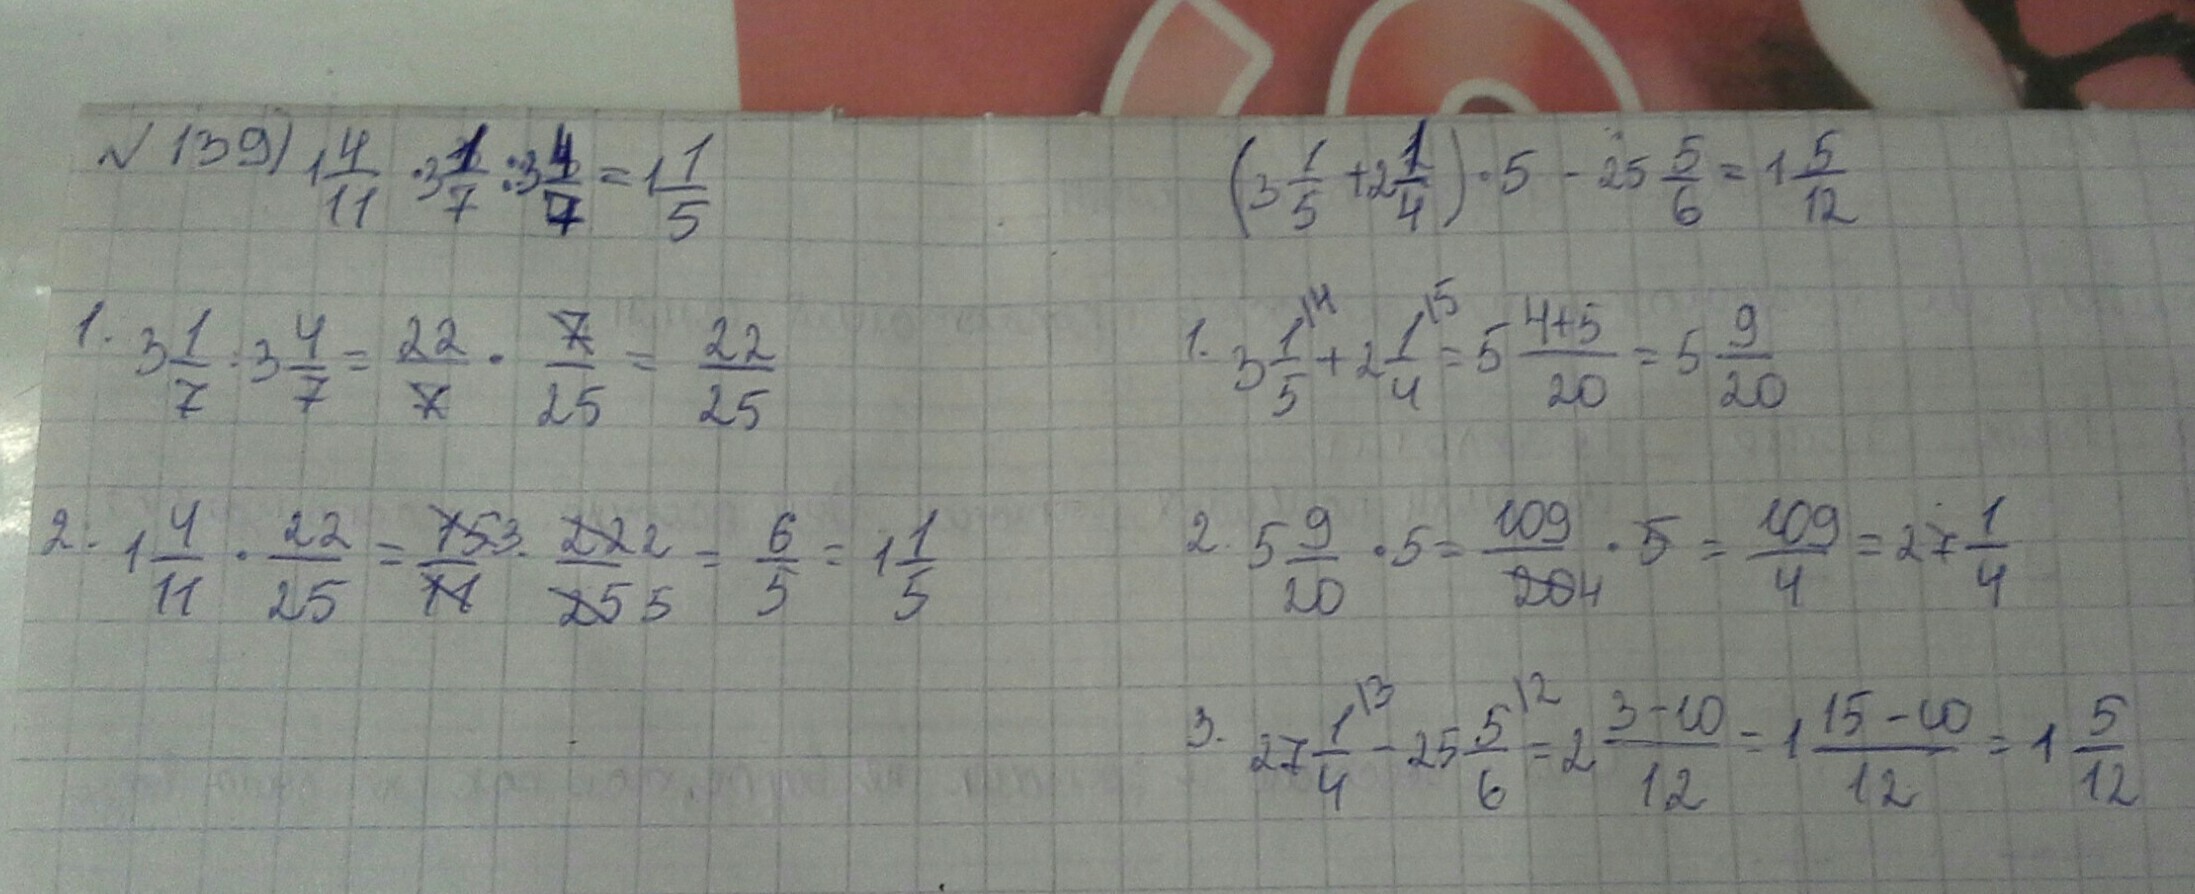 № 139) 1 4/11 · 3 1/7 : 3 4/7 = 1 1/5
1. 3 1/7 : 3 4/7 = 22/7 · 7/25 = 22/25
2. 1 4/11 · 22/25 = 15 3/11 · 22 2/25 5 = 6/5 = 1 1/5
(3 1/5 + 2 1/4) · 5 - 25 5/6 = 1 5/12
1. 3 1/5 \4 + 2 1/4 \5 = 5 4+5/20 = 5 9/20
2. 5 9/20 · 5 = 109/20 4 · 5 = 109/4 = 27 1/4
3. 27 1/4 \3 - 25 5/6 \2 = 2 3-10/12 = 1 15-10/12 = 1 5/12